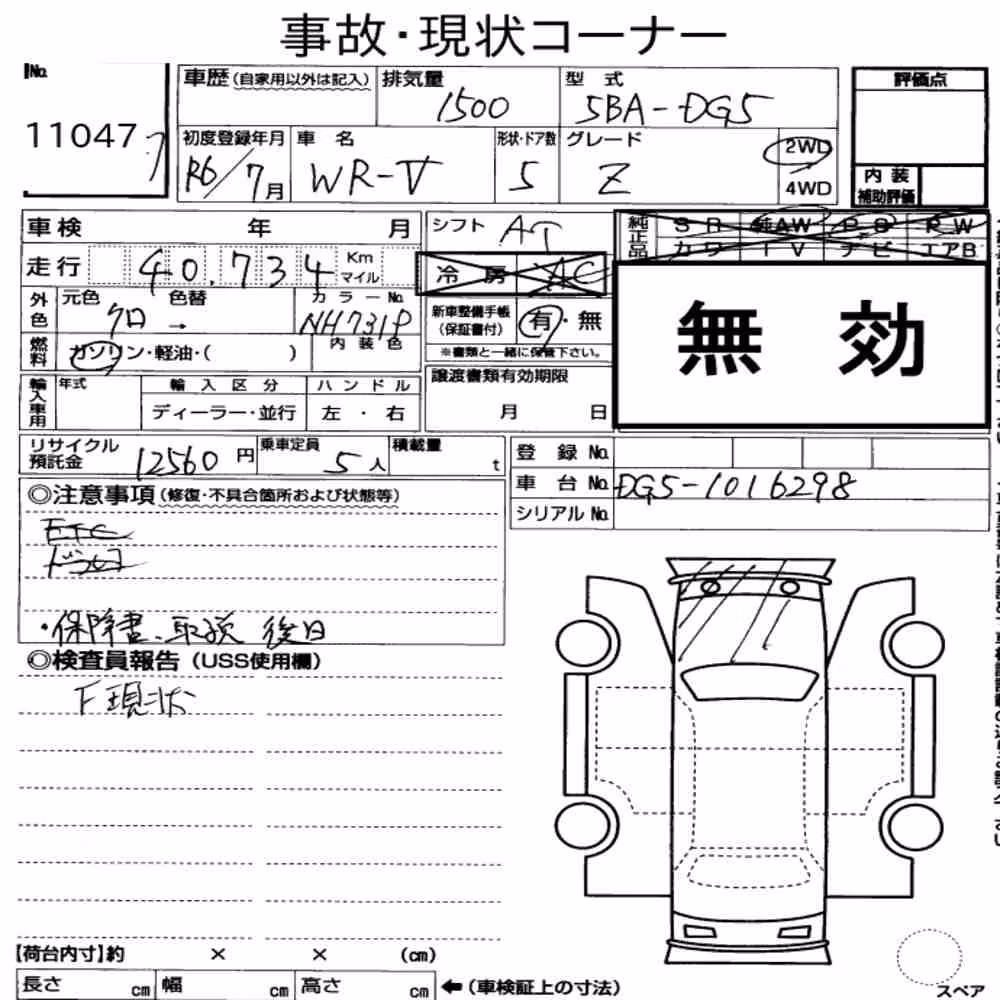 事故・現状コーナー
No. 11047
車歴(自家用以外は記入) 排気量 1500 型式 5BA-DG5
評価点
初度登録年月 R6/7月 車名 WR-V 形状・ドア数 5 グレード Z 2WD 4WD
内装補助評価
車検 年 月
シフト AT
純正品 SR 純AW PS PW
カワ TV ナビ エアB
走行 40,734 Km マイル
冷房 AC
外色 元色 クロ → 色替 カラーNo. NH731P
新車整備手帳(保証書付) 有・無
※書類と一緒に保管下さい。
無効
燃料 ガソリン・軽油・( ) 内装色
輸入車用 年式 輸入区分 ハンドル
ディーラー・並行 左・右
譲渡書類有効期限
月 日
リサイクル預託金 12560円 乗車定員 5人 積載量 t
登録No.
車台No. DG5-1016298
シリアルNo.
◎注意事項(修復・不具合箇所および状態等)
ETC
ドラレコ
・保障書、取説 後日
◎検査員報告(USS使用欄)
F現状
【荷台内寸】約 × × (cm)
長さ cm 幅 cm 高さ cm ←(車検証上の寸法)
スペア